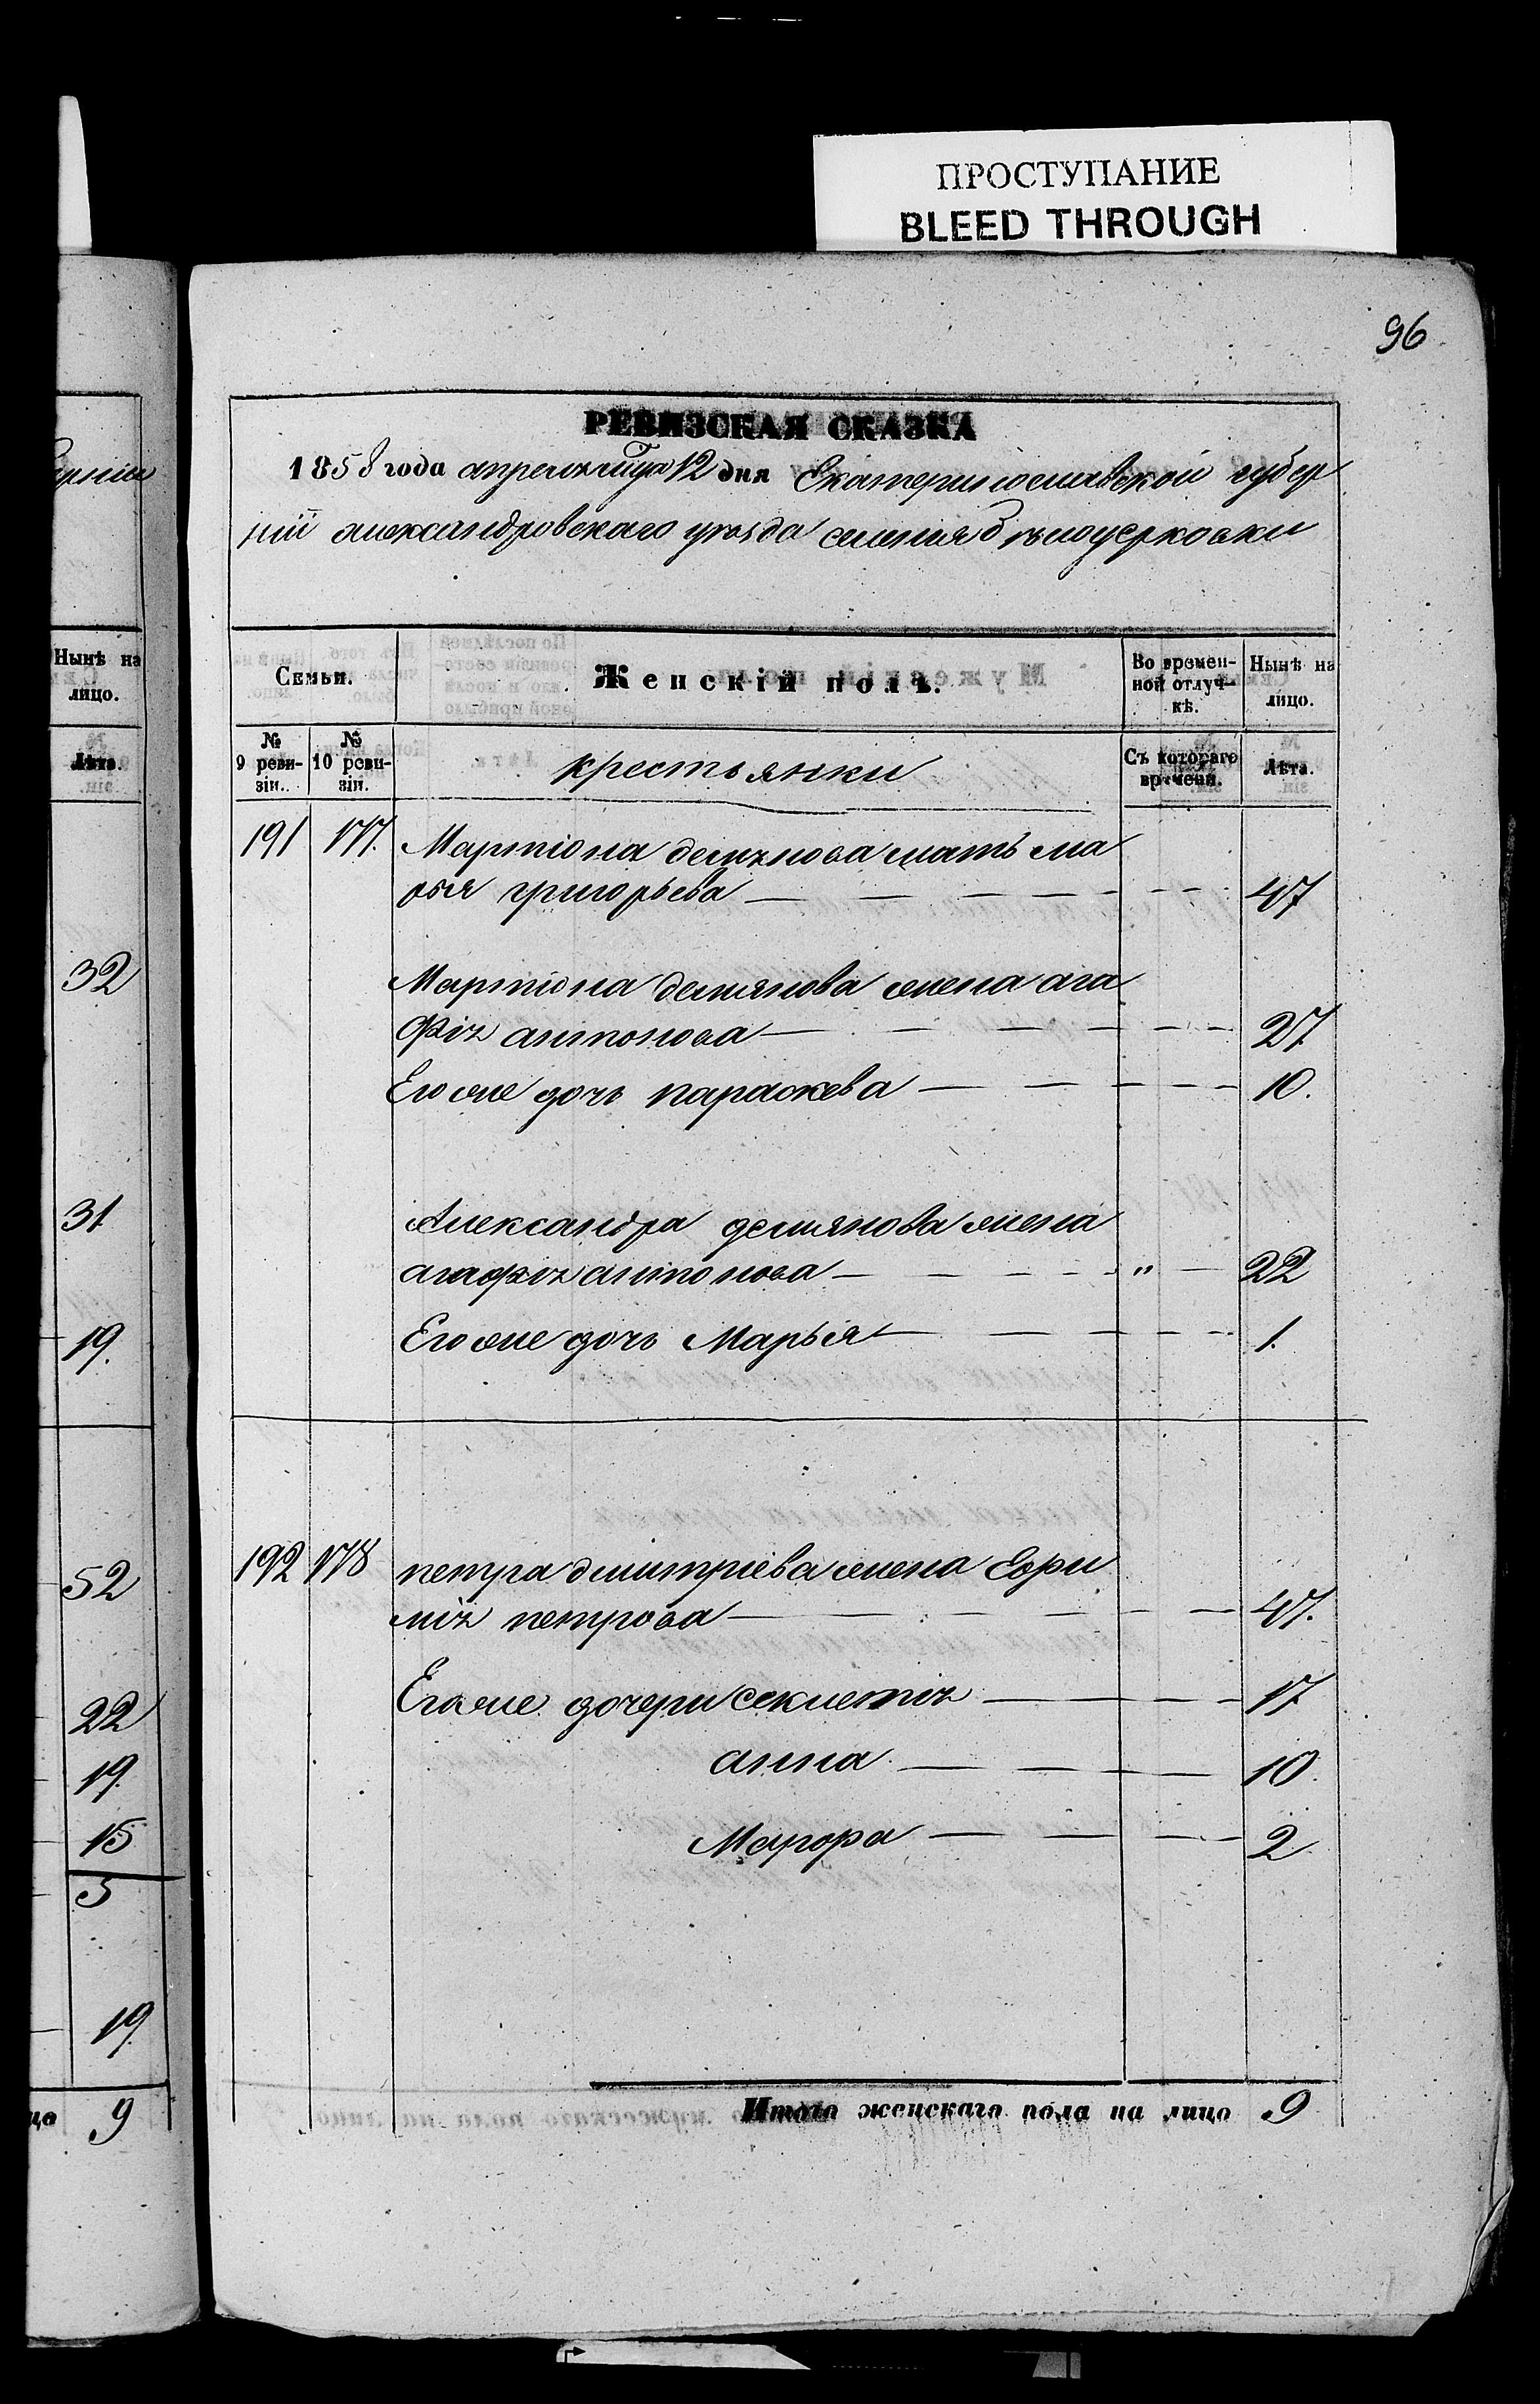 ПРОСТУПАНИЕ
BLEED THROUGH
96
РЕВИЗСКАЯ СКАЗКА
1858 года апреля мца 12 дня Екатеринославской губер
ніи александровскаго уезда селения бѣлоцерковки
Нынѣ на лицо.
Лѣта.
32
31
19.
52
22
19.
15
3
19.
9
Семьи. Женскій полъ. Во времен-ной отлуч-кѣ. Нынѣ на лицо.
№ 9 реви-зіи. № 10 реви-зіи. крестьянки Съ котораго времени. Лѣта.
191 177. Мартиона демянова мать ма
рья григорьева 47
Мартиона демянова жена ага
фия антонова 27.
Его же дочь параскева 10.
Александра демянова жена
агафия антонова " 22
Его же дочь Марья 1.
192 178 петра дмитриева жена Ефи
мия петрова 47.
Его же дочери секлетия 17
анна 10.
Мавра 2
Итого женскаго пола на лицо 9